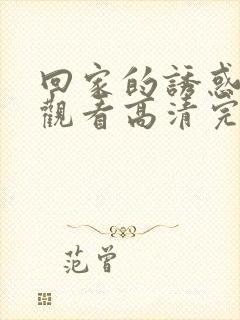 回家的誘惑
觀看高清完
范曾